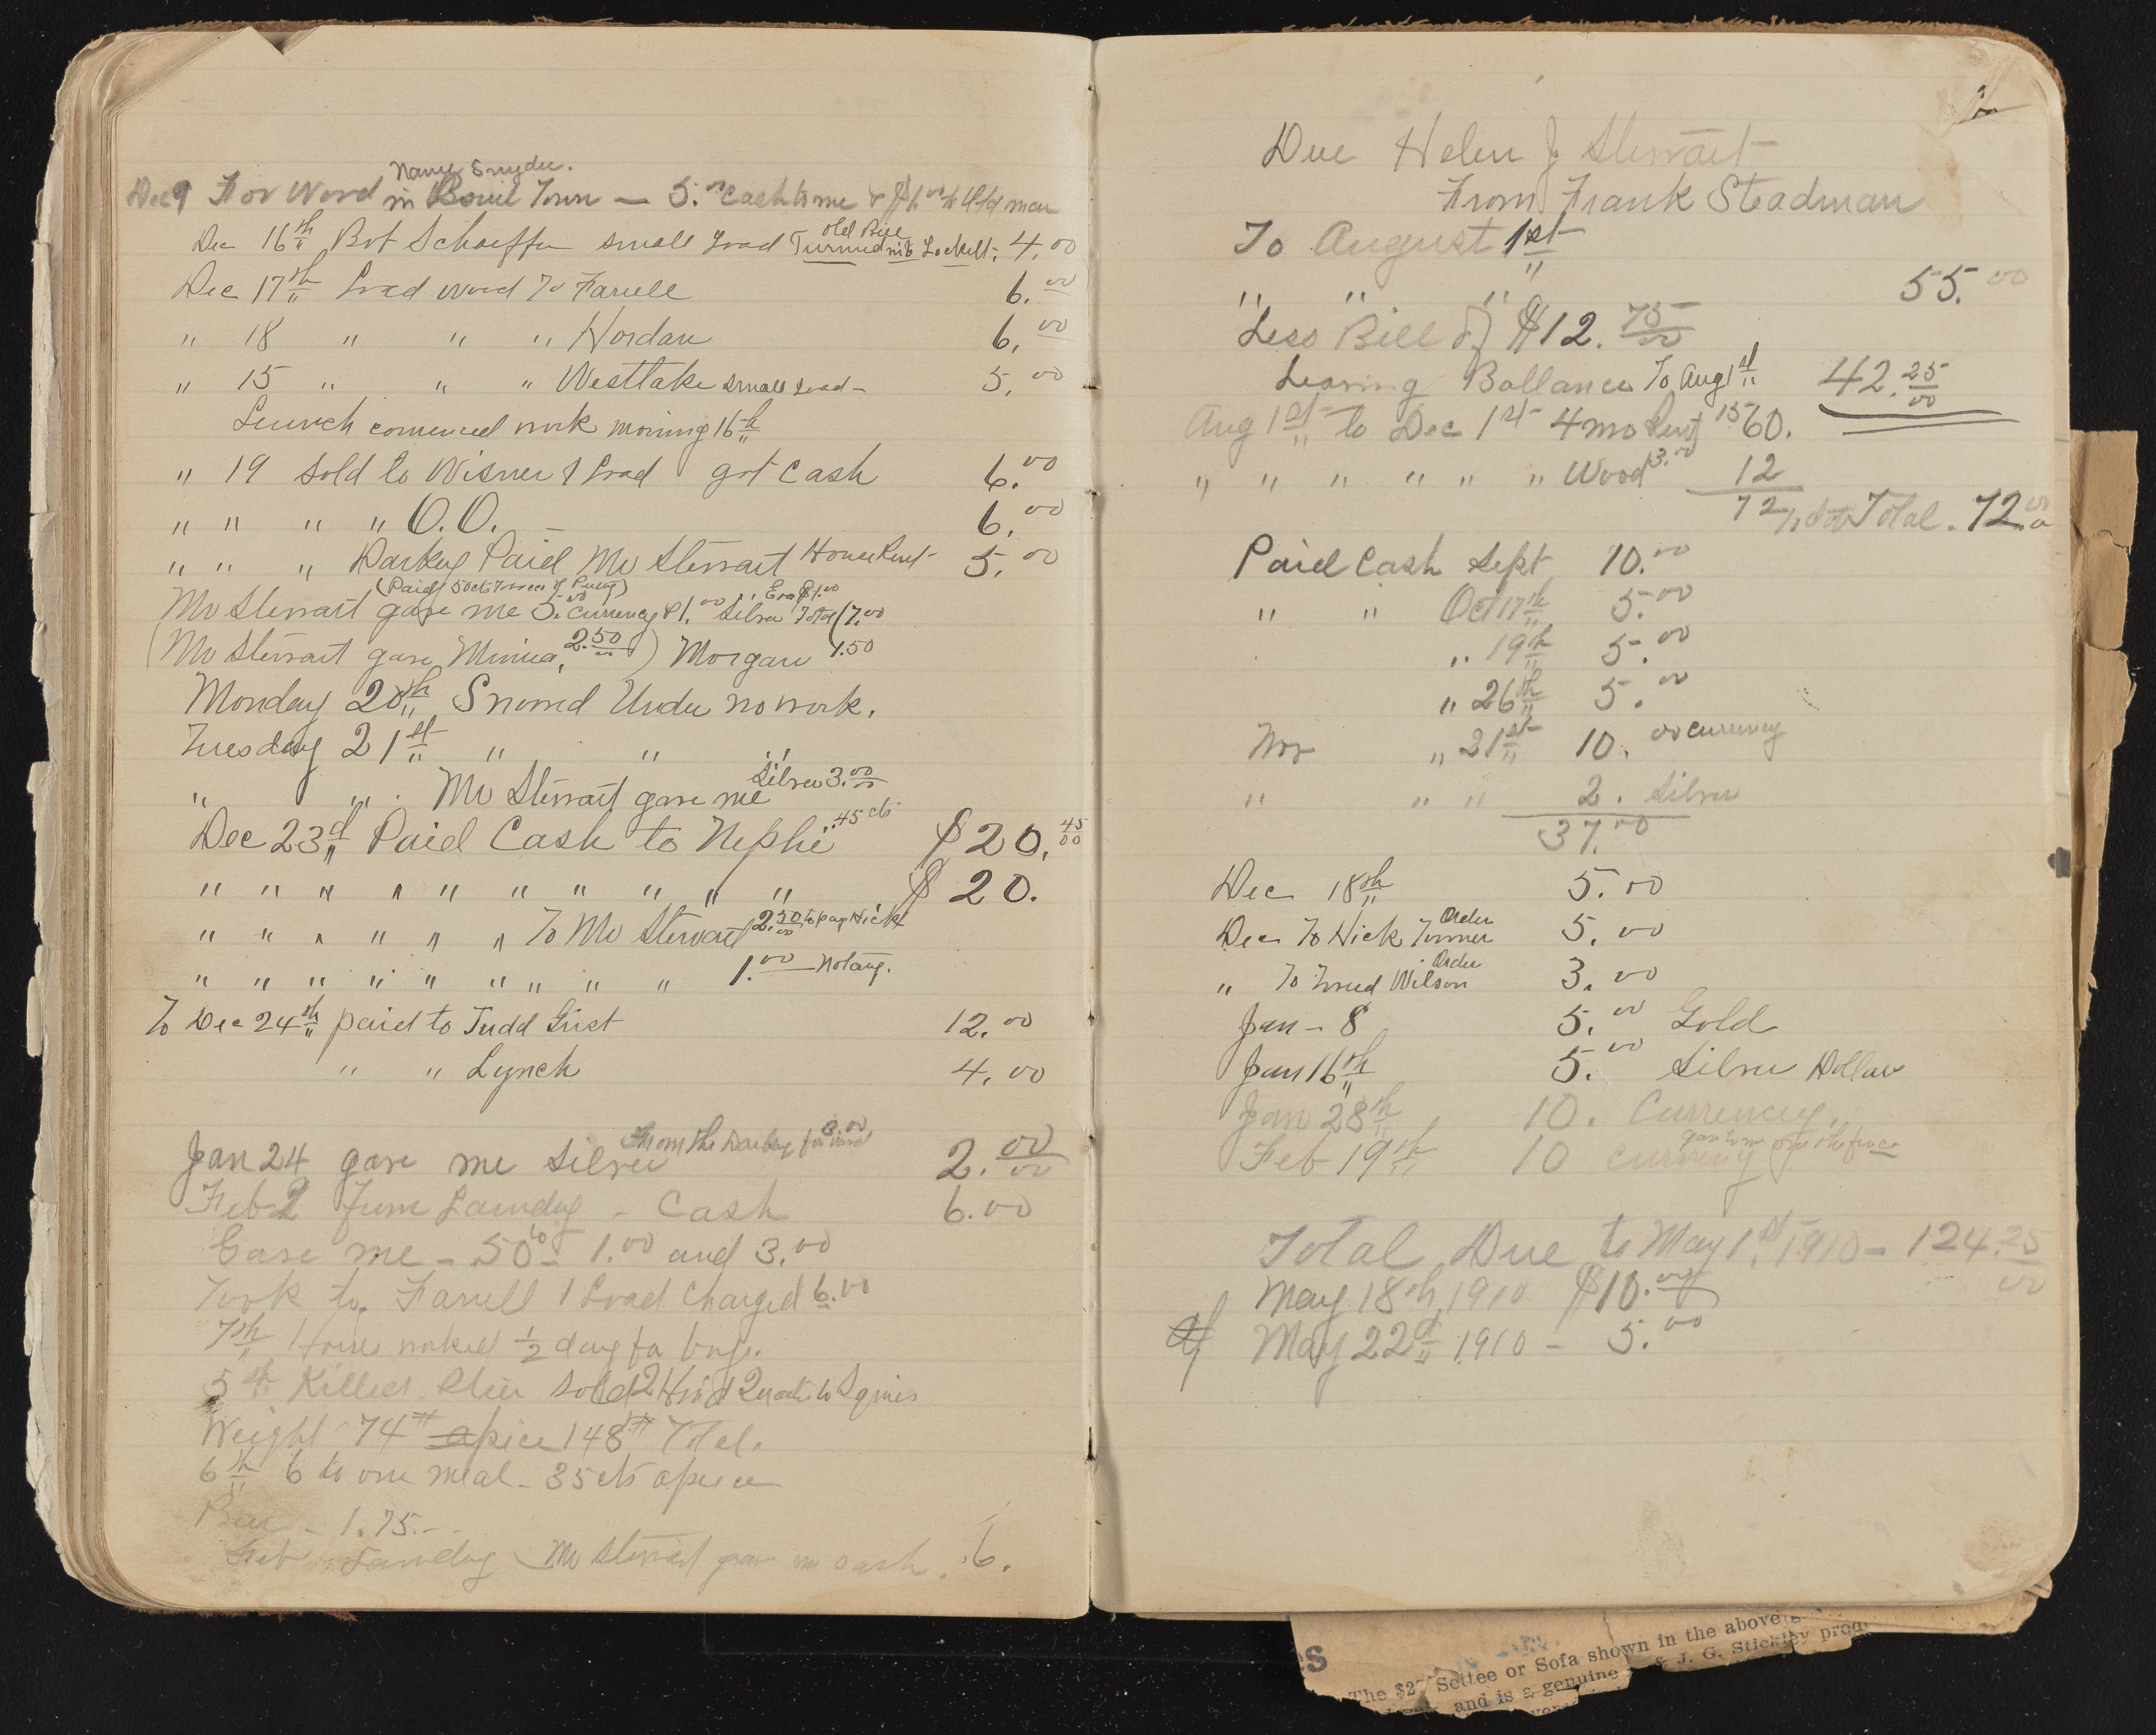 Name Snyder.
Dec 9 For Wood in Town — 5.00 Cash to me & $1.00 to Old man
Old Bill
Dec 16th Bot Schaeffer small Load 4.00
Dec 17th Load wood To Farrell 6.00
" 18 " " " Hordan 6.00
" 15 " " " Westlake small Load - 5.00
comenced work morning 16th
" 19 Sold to Wisner 1 Load got cash 6.00
" " " " O.O. — 6.00
" " " Darkey Paid Mr Stewart House Rent 5.00
(Paid 50cts
Mr Stewart gave me 5.00 currency & 1.00 Silver Total 7.00
(Mr Stewart gave Minnie, 2.50) Morgan 1.50
Monday 20th Snowed Under no work.
Tuesday 21st " " "
" " . Mr Stewart gave me Silver 3.00
Dec 23d Paid Cash to Nephi 45 cts $20.45
" " " " " " " " " " $20.
" " " " " " To Mr Stewart 2.50 to pay Hick
" " " " " " " " " 1.00
To Dec 24th paid to Judd Grist 12.00
" " Lynch 4.00
Jan 24 gave me Silver From the Darkey for Wood 3.00 2.00
Feb 2 from Laundry - Cash 6.00
Gave me - 50 - 1.00 and 3.00
Took to Farrell 1 Load Charged 6.00
7th worked 1/2 day for
5th Killed Steer sold 2 Hind Quarters to Squires
Weight 74# apiece 148# Total.
6th 6 to one meal - 35 cts apiece
1.75.-
Feb Laundry Mr Stewart gave me cash. 6.
Due Helen J Stewart
From Frank Steadman
To August 1st
" " " 55.00
Less Bill of $12.75
Leaving Ballance To Aug 1st 42.25
Aug 1st to Dec 1st 4 mo Rent 15 60.
" " " " " " Wood 3.00 12
72 Total. 72.00
Paid Cash Sept 10.00
" " Oct 17th 5.00
" 19th 5.00
" 26th 5.00
Nov " 21st 10.00 currency
" " " 2. Silver
37.00
Dec 18th 5.00
Dec To Hick Turner Order 5.00
" To Wilson Order 3.00
Jan - 8 5.00 Gold
Jan 16th 5.00 Silver Dollar
Jan 28th 10. Currency.
Feb 19th 10 Currency gave to me over the fence
Total Due to May 1st 1910 - 124.25
May 18th 1910 $10.00
May 22d 1910 - 5.00
The $27 Settee or Sofa shown in the above
& J. G. Stickley
and is a genuine